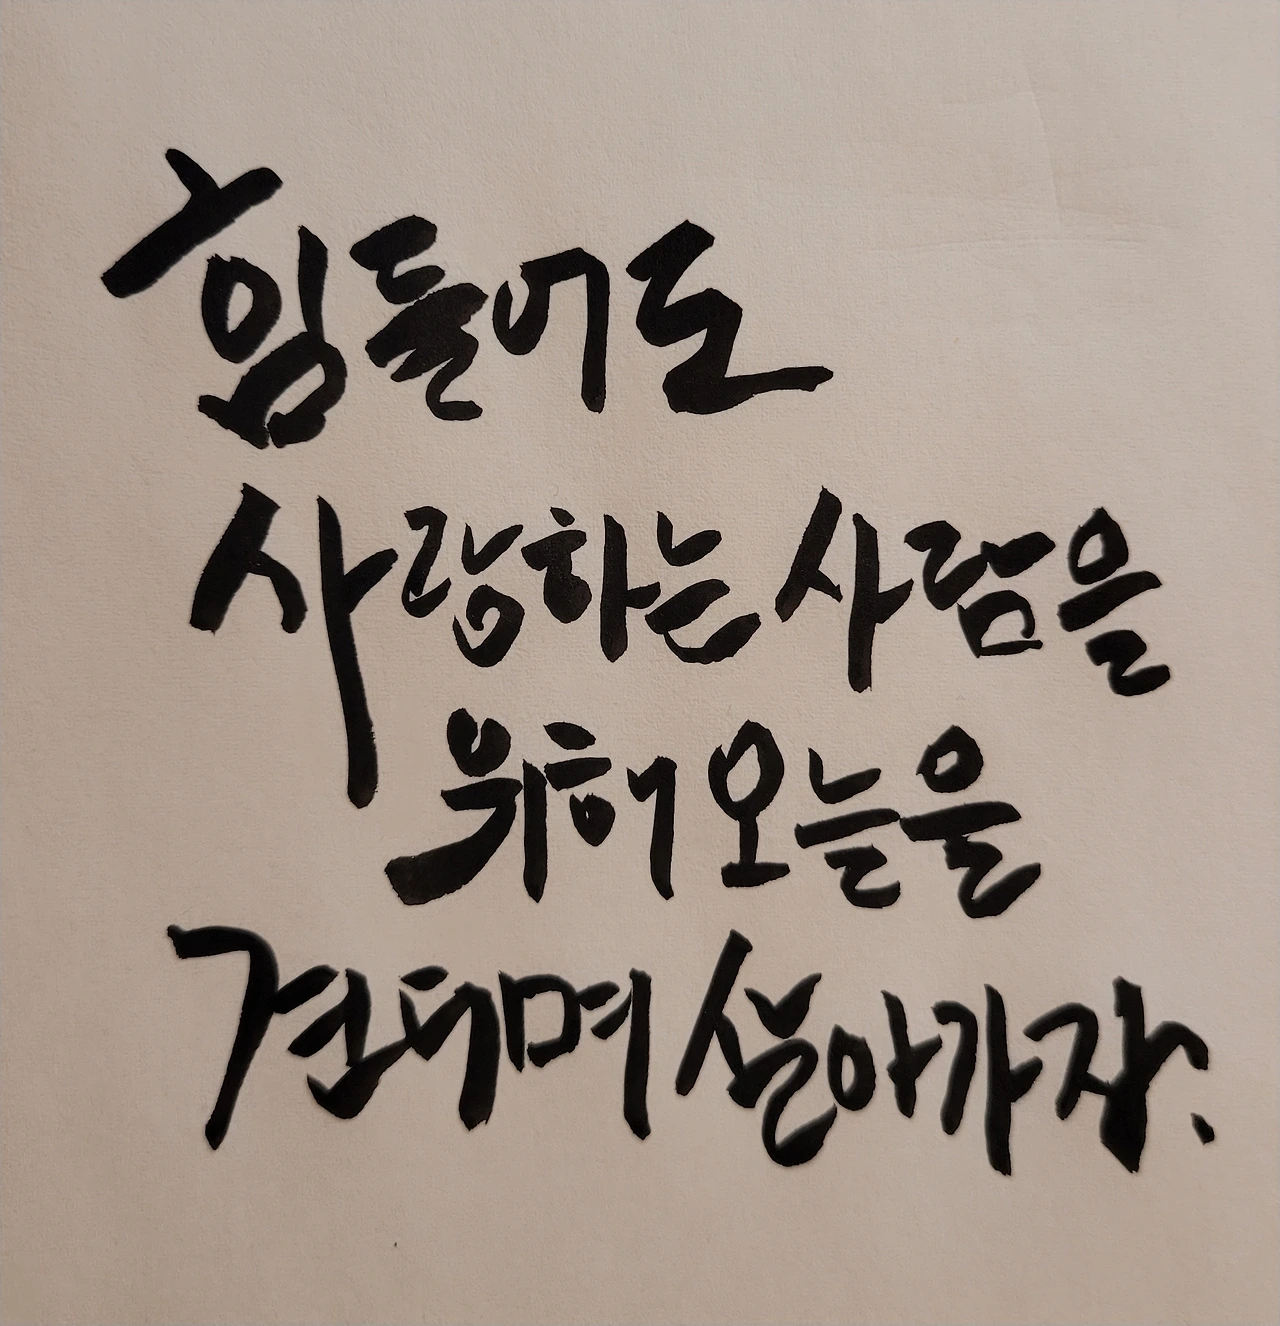 힘들어도
사랑하는 사람을
위해 오늘을
견디며 살아가자.